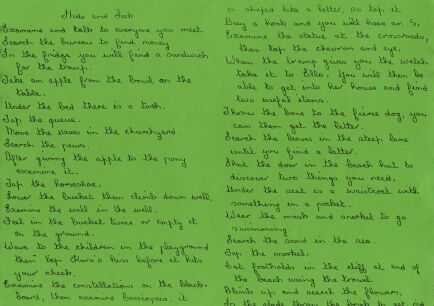 Hide and Seek
Examine and talk to everyone you meet
Search the bureau to find money
In the fridge you will find a sandwich
for the tramp.
Take an apple from the bowl on the
table.
Under the bed there is a torch.
Tap the queue.
Move the vases in the churchyard.
Search the pews.
After giving the apple to the pony
examine it.
Tap the horseshoe.
Lower the bucket then climb down well
Examine the wall in the well.
Put in the bucket twice or empty it
on the ground.
Wave to the children in the playground
then tap Kiera's kiss before it hits
your cheek.
Examine the constellations on the black-
board, then examine Cassiopea, it
is shaped like a letter, so tap it
Buy a hook and you will have an S.
Examine the statue at the crossroads,
then tap the chevron and eye.
When the tramp gives you the watch
take it to Ella. You will then be
able to get into her house and find
two useful items.
Throw the bone to the fierce dog, you
can then get the letter.
Search the leaves in the steep lane
until you find a letter.
Shut the door in the beach hut to
discover two things you need.
Under the seat is a waistcoat with
something in a pocket.
Wear the mask and snorkel to go
swimming.
Search the sand in the sea.
Tap the snorkel.
Cut footholds in the cliff at end of
the beach using the trowel.
Climb up and search the flowers.
In the glade throw the